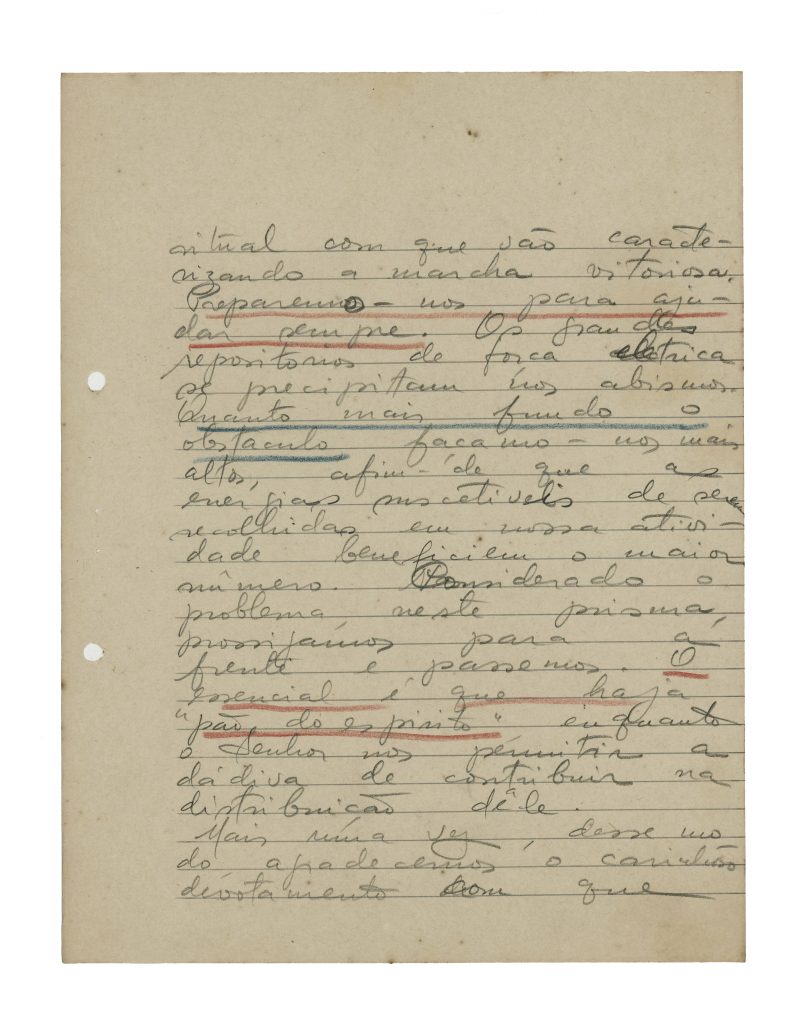 ritual com que vão caracte-
rizando a marcha vitoriosa.
Preparemo-nos para aju-
dar sempre. Os grandes
repositorios de força eletrica
se precipitam nos abismos.
Quanto mais fundo o
obstaculo façamo-nos mais
altos, afim-de que as
energias suscetiveis de serem
recolhidas em nossa ativi-
dade beneficiem o maior
número. Considerado o
problema neste prisma,
prossigamos para a
frente e passemos. O
essencial é que haja
"pão do espirito" enquanto
o Senhor nos permitir a
dádiva de contribuir na
distribuição dêle.
Mais uma vez, desse mo
do agradecemos o carinhoso
devotamento com que